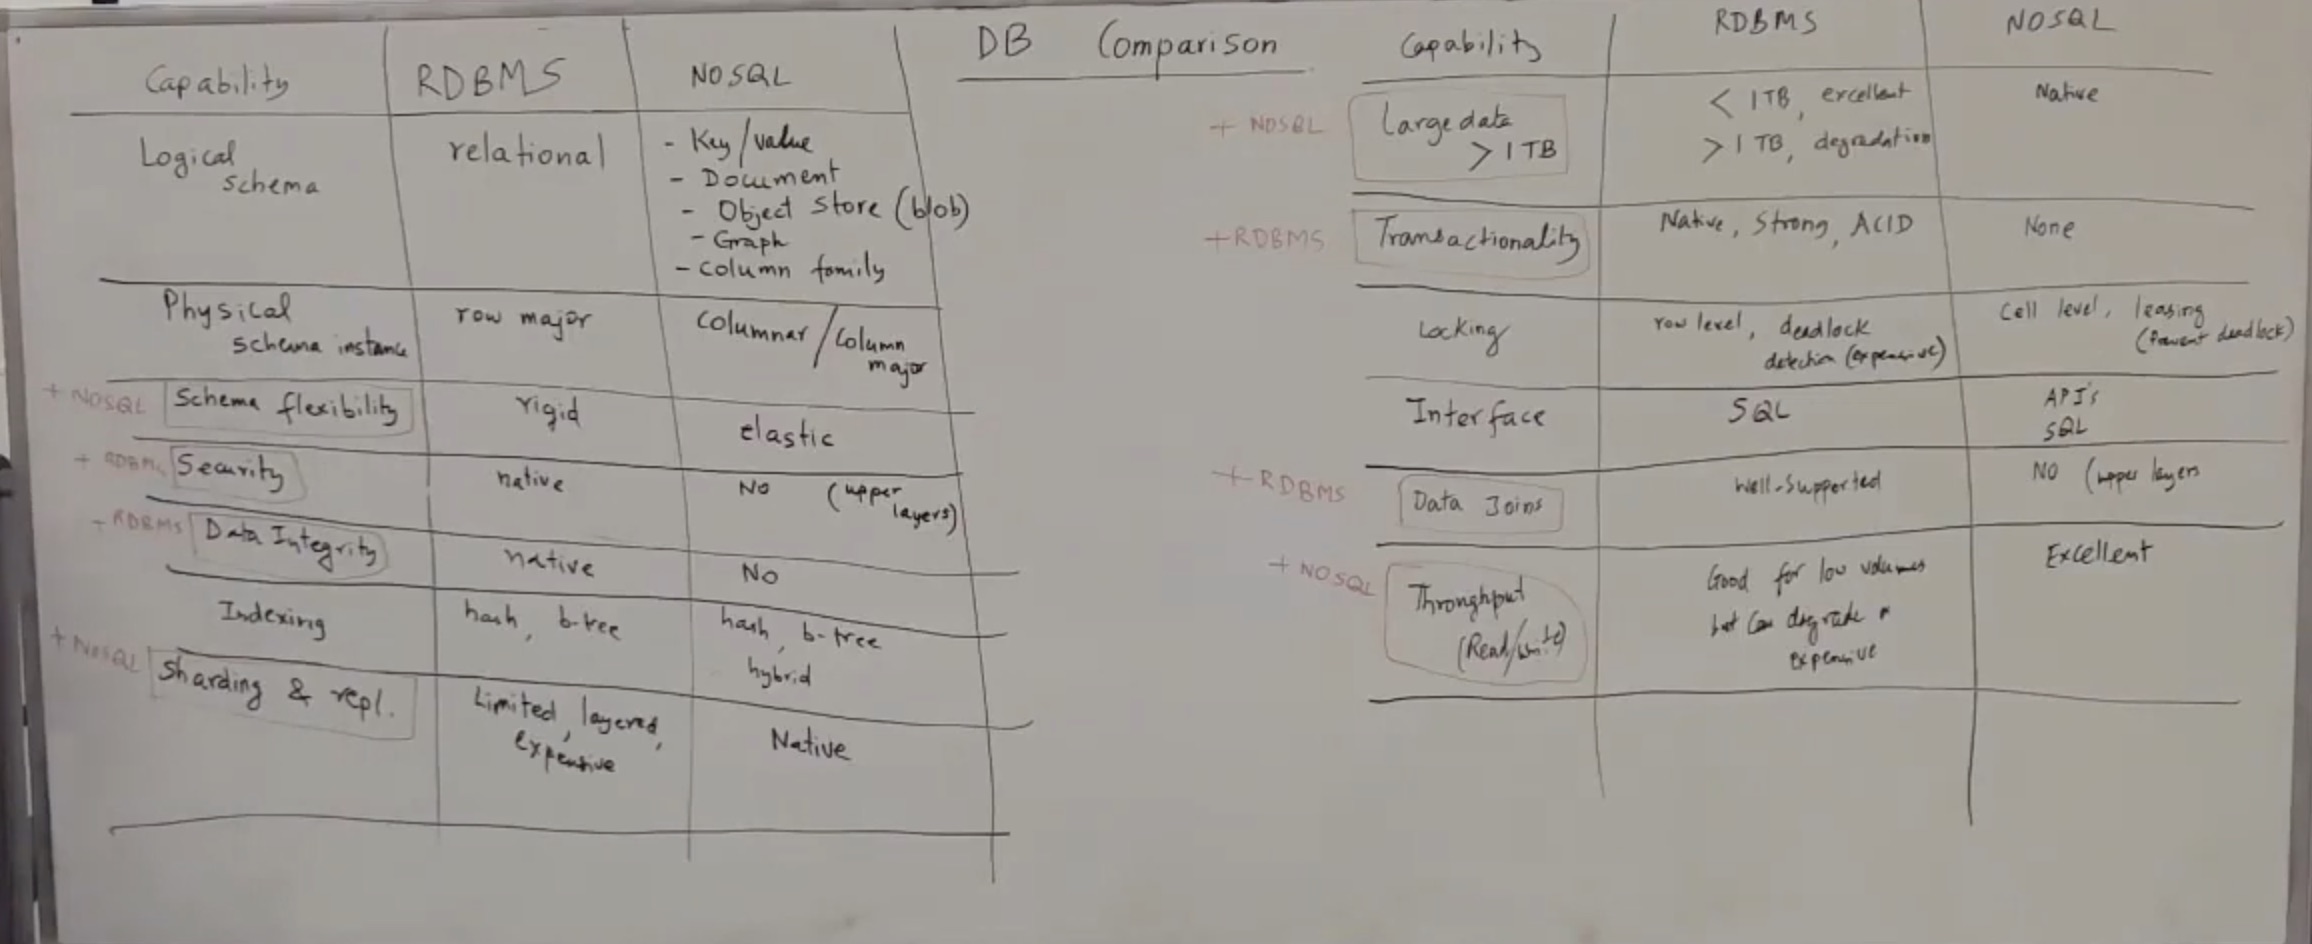 DB Comparison
Capability RDBMS NOSQL
Logical schema relational - Key/value
- Document
- Object Store (blob)
- Graph
- Column family
Physical schema instance row major Columnar/Column major
+ NOSQL Schema flexibility rigid elastic
+ RDBMS Security native NO (upper layers)
+ RDBMS Data Integrity native NO
Indexing hash, b-tree hash, b-tree
hybrid
+ NOSQL Sharding & repl. Limited, layered, Native
expensive
Capability RDBMS NOSQL
+ NOSQL Large data < 1TB, excellent Native
> 1 TB > 1 TB, degradation
+RDBMS Transactionality Native, Strong, ACID None
Locking row level, deadlock Cell level, leasing
detection (expensive) (Prevent deadlock)
Interface SQL API's
SQL
+ RDBMS Data Joins Well-Supported NO (upper layers
+ NOSQL Throughput Good for low volumes Excellent
(Read/write) but can degrade
expensive